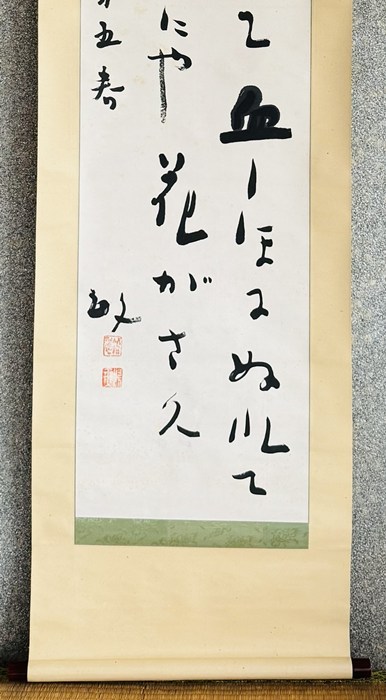 て血しほにぬれて
にや花がさ久
五春
敏